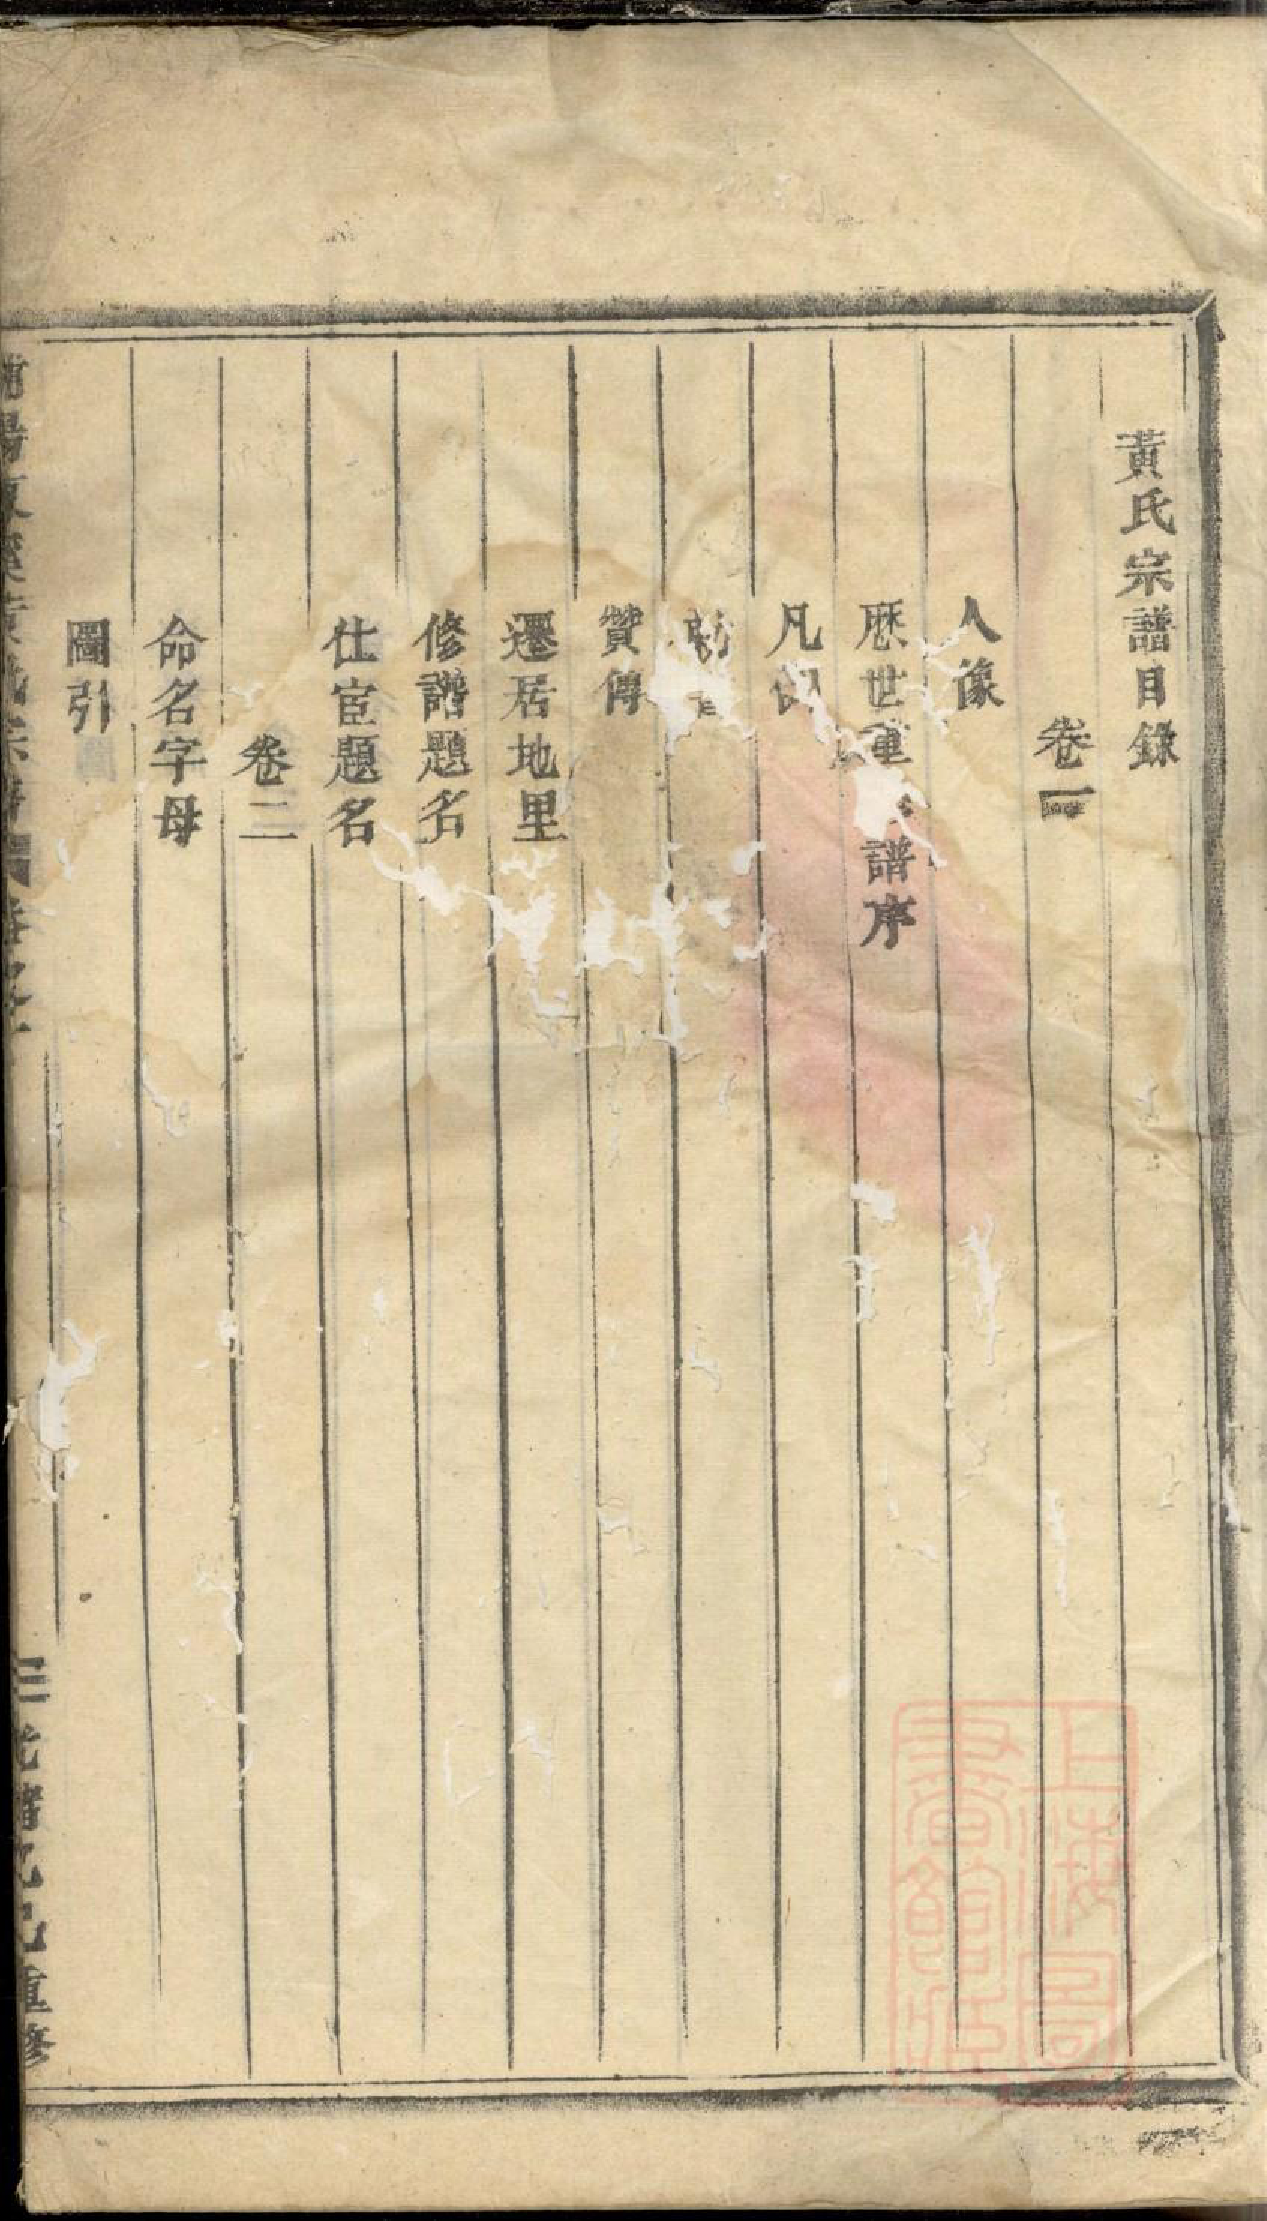 黃氏宗譜目錄
卷一
人像
歷世重譜序
凡例
贊傳
遷居地里
修譜題名
仕宦題名
卷二
命名字母
圖引
光緒乙巳重修
上海圖
書館藏